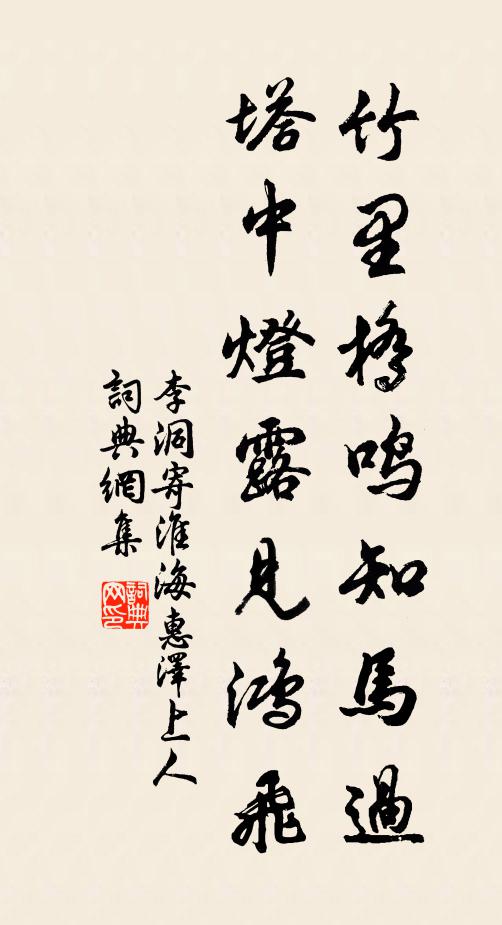 竹里橋鳴知馬過
塔中燈露見鴻飛
李洞寄淮海惠澤上人
詞典網集
詞典网印